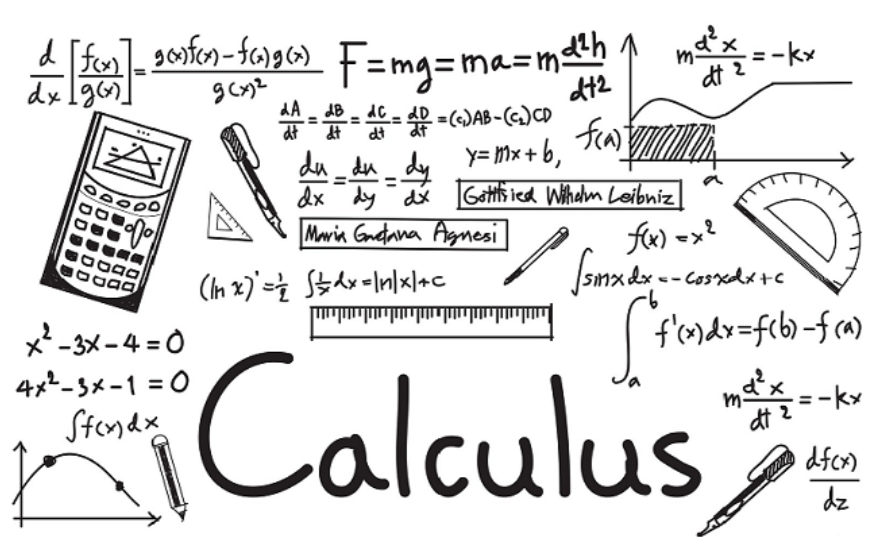 d/dx [f(x)/g(x)] = g(x)f(x) - f(x)g(x) / g(x)²
F = mg = ma = m d²h/dt2
m d²x/dt² = -kx
dA/dt = dB/dt = dC/dt = dD/dt = (c₁)AB - (c₂)CD
f(a)
a
y = mx + b,
du/dx = du/dy = dy/dx
Gottfried Wilhelm Leibniz
Maria Gaetana Agnesi
f(x) = x²
(ln x)' = 1/2
∫ 1/x dx = ln|x| + c
∫ sinx dx = - cosxdx + c
∫ₐᵇ f'(x) dx = f(b) - f(a)
x² - 3x - 4 = 0
4x² - 3x - 1 = 0
∫f(x) dx
Calculus
m d²x/dt² = -kx
df(x)/dz